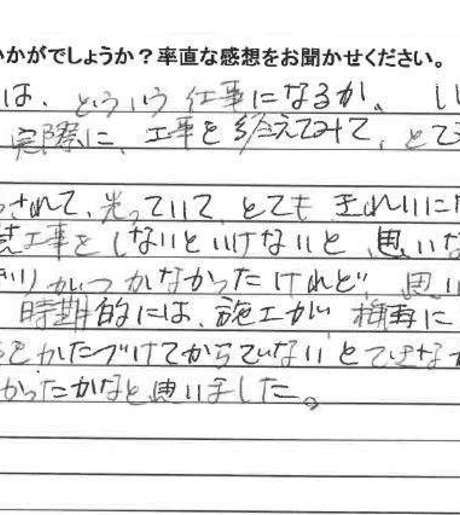 いかがでしょうか？率直な感想をお聞かせください。
は、どういう仕事になるか、い
実際に、工事を終えてみて、とて
されて、光っていて、とても きれいにな
装工事をしないといけないと、思いな
きりがつかなかったけれど、思い
時期的には、施工が、梅雨に
をかたづけてからでないとできな
かったかなと思いました。